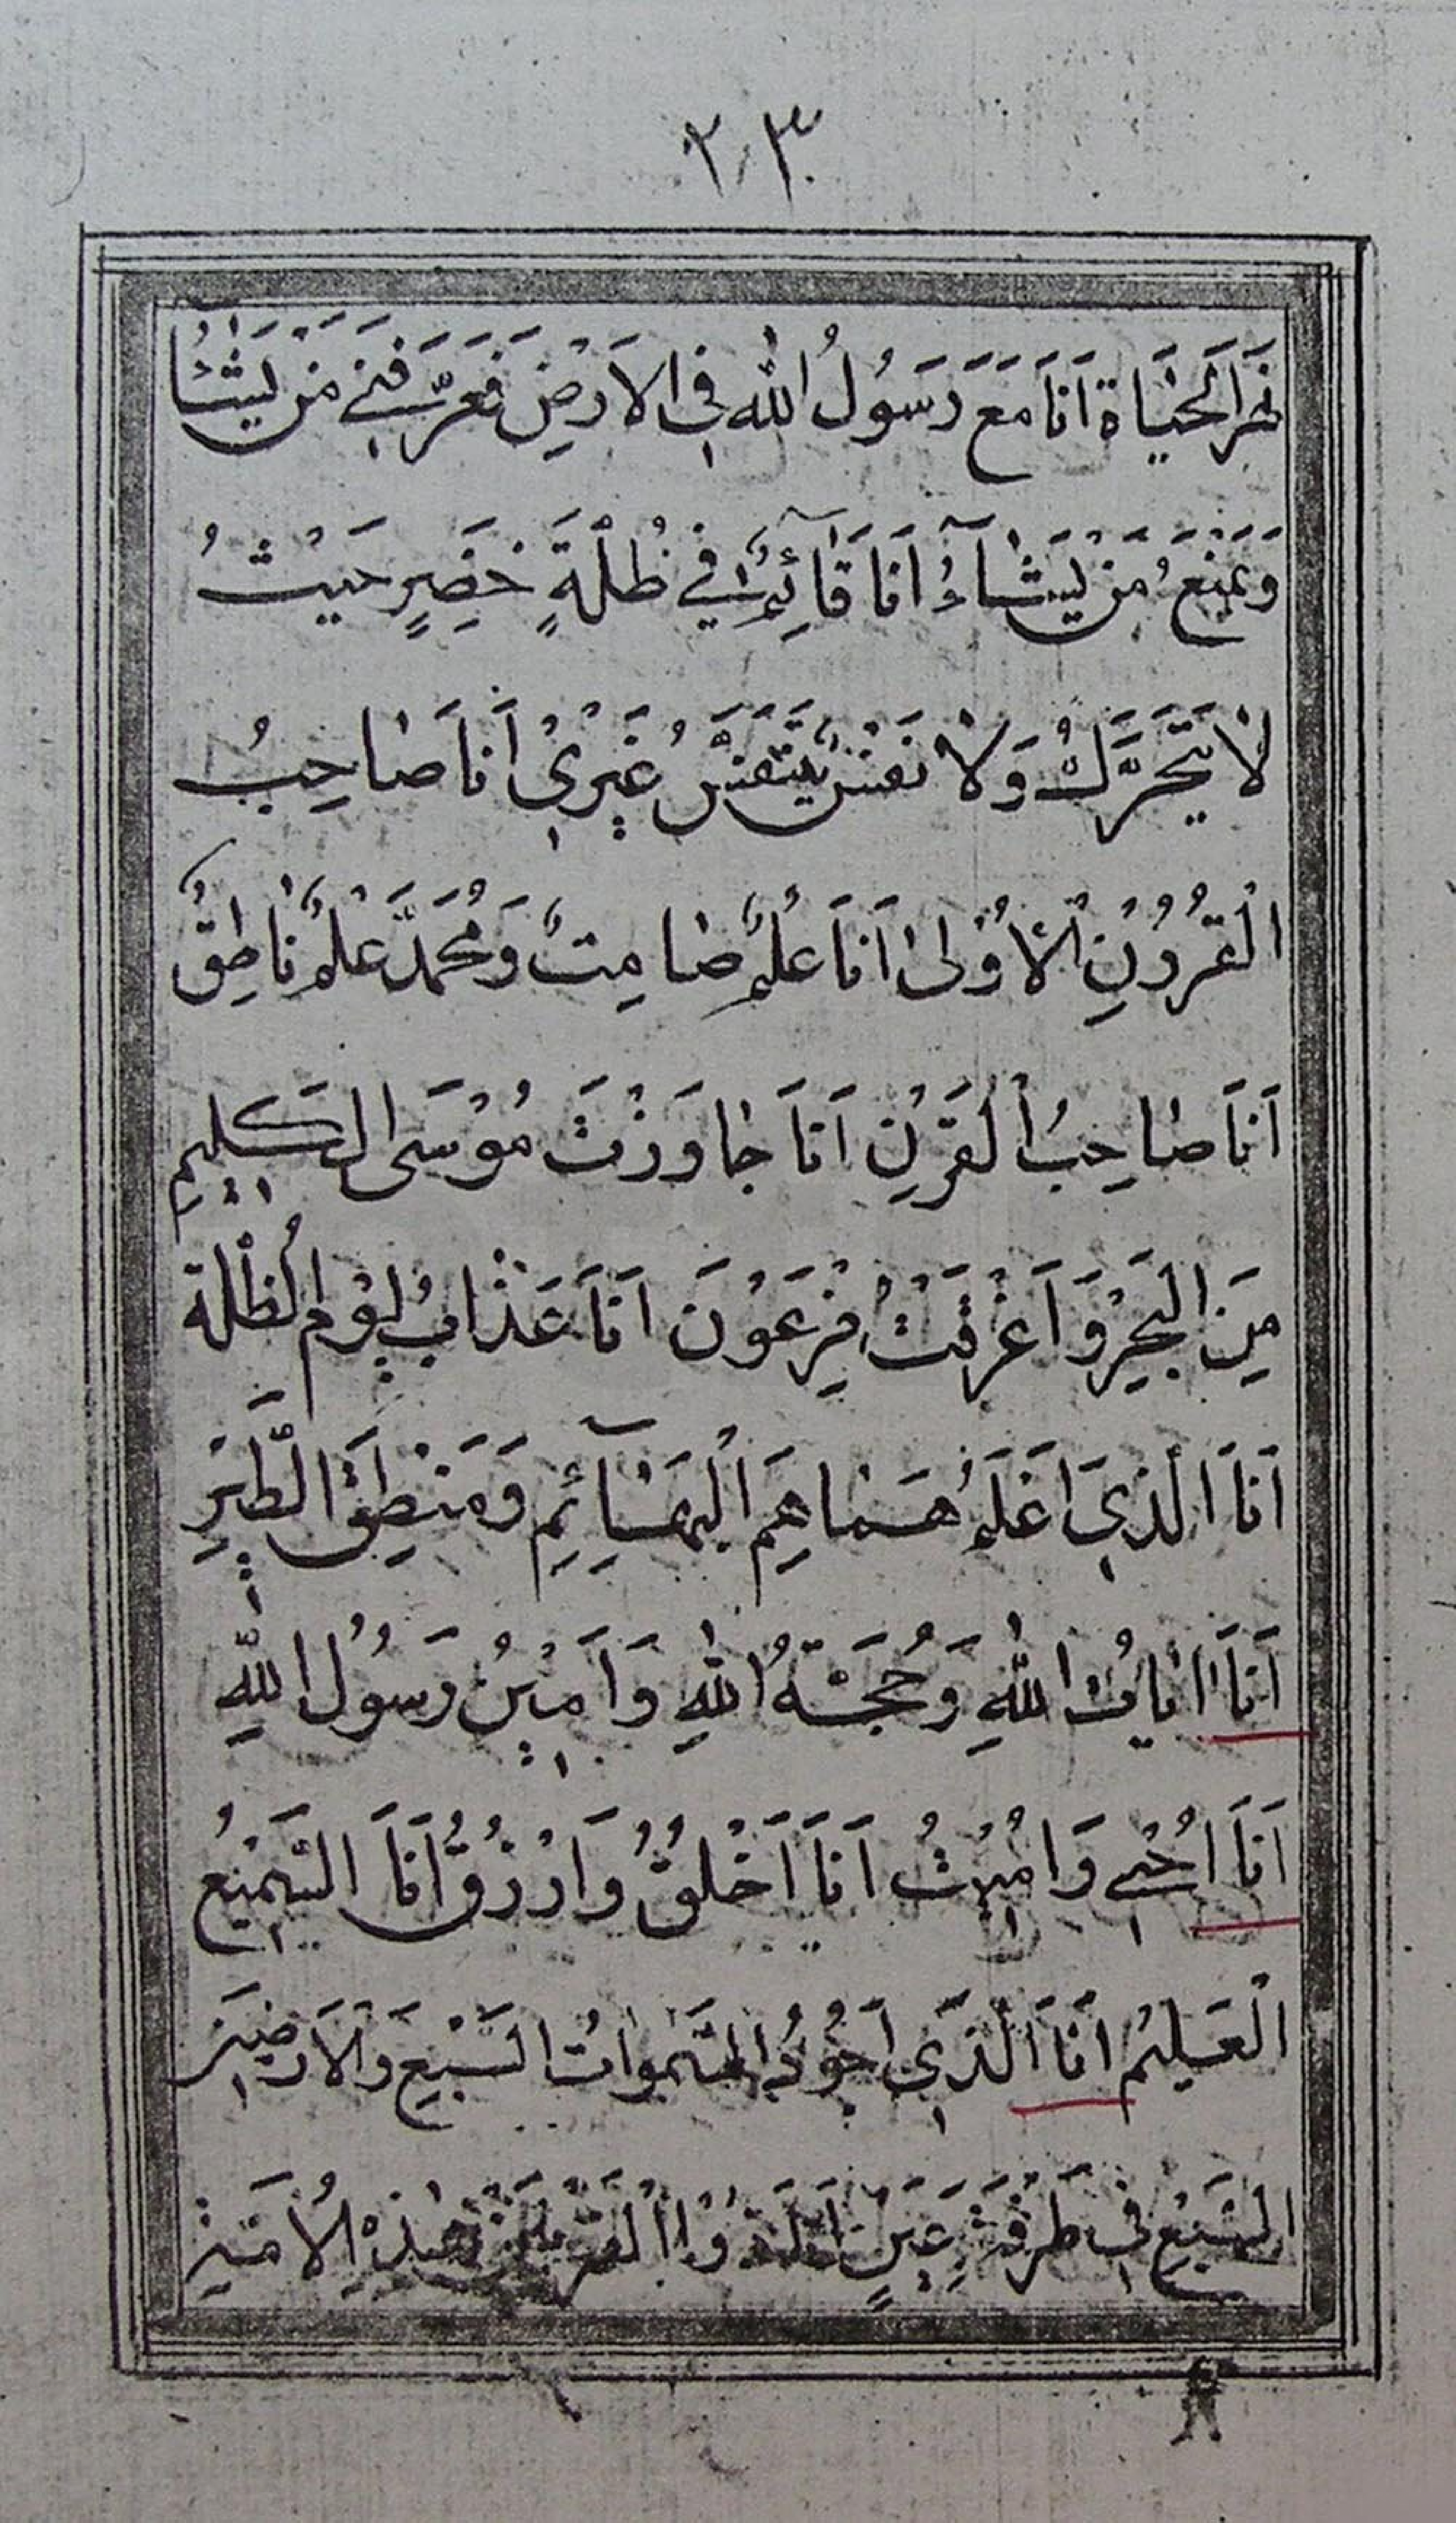 ٢٠٣
الحَيَاةِ اَنَا مَعَ رَسُولُ اللهِ فِي الاَرْضِ فَعَرَّفَنِي مَنْ يَشَاءُ
وَيَمْنَعُ مَنْ يَشَآءُ اَنَا قَآئِمٌ فِي ظُلَّةٍ خَضِرٍ حَيْثُ
لَا يَتَحَرَّكُ وَلَا نَفَسٌ يَتَنَفَّسُ غَيْرِي اَنَا صَاحِبُ
الْقُرُونِ الْاُوْلىٰ اَنَا عَلَمٌ صَامِتٌ وَمُحَمَّدٌ عَلَمٌ نَاطِقٌ
اَنَا صَاحِبُ الْقَرْنِ اَنَا جَاوَزْتُ مُوْسَى الكَلِيمِ
مِنَ الْبَحْرِ وَاَغْرَقْتُ فِرْعَوْنَ اَنَا عَذَابُ يَوْمِ الظُلَّةِ
اَنَا الَّذِي اَعْلَمُ هَمَاهِمَ الْبَهَآئِمِ وَمَنْطِقَ الطَّيْرِ
اَنَا اٰيَاتُ اللهِ وَحُجَّةُ اللهِ وَاَمِيْنُ رَسُولِ اللهِ
اَنَا اُحْيِي وَاُمِيْتُ اَنَا اَخْلُقُ وَاَرْزُقُ اَنَا السَّمِيْعُ
الْعَلِيْمُ اَنَا الَّذِي اَجُوْدُ السَّمٰوَاتُ السَّبْعِ وَالْاَرَضِيْنَ
السَّبْعِ فِي طَرْفَةِ عَيْنٍ اَنَا الْقَرْنَيْنِ هٰذِهِ الْاُمَّةِ